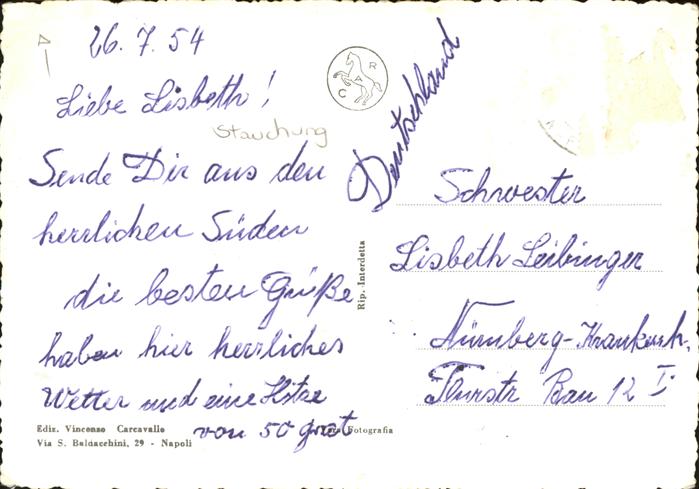 26. 7. 54
Liebe Lisbeth!
Stauchung
Sende Dir aus den
herrlichen Süden
die besten Grüße
haben hier herrliches
Wetter und eine Hitze
von 50 grat
Ediz. Vincenzo Carcavallo
Via S. Baldacchini, 29 - Napoli
Fotografia
Rip. Interdetta
C A R
Deutschland
Schwester
Lisbeth Leibinger
Nürnberg-Krankenh.
Flurstr Bau 12 I